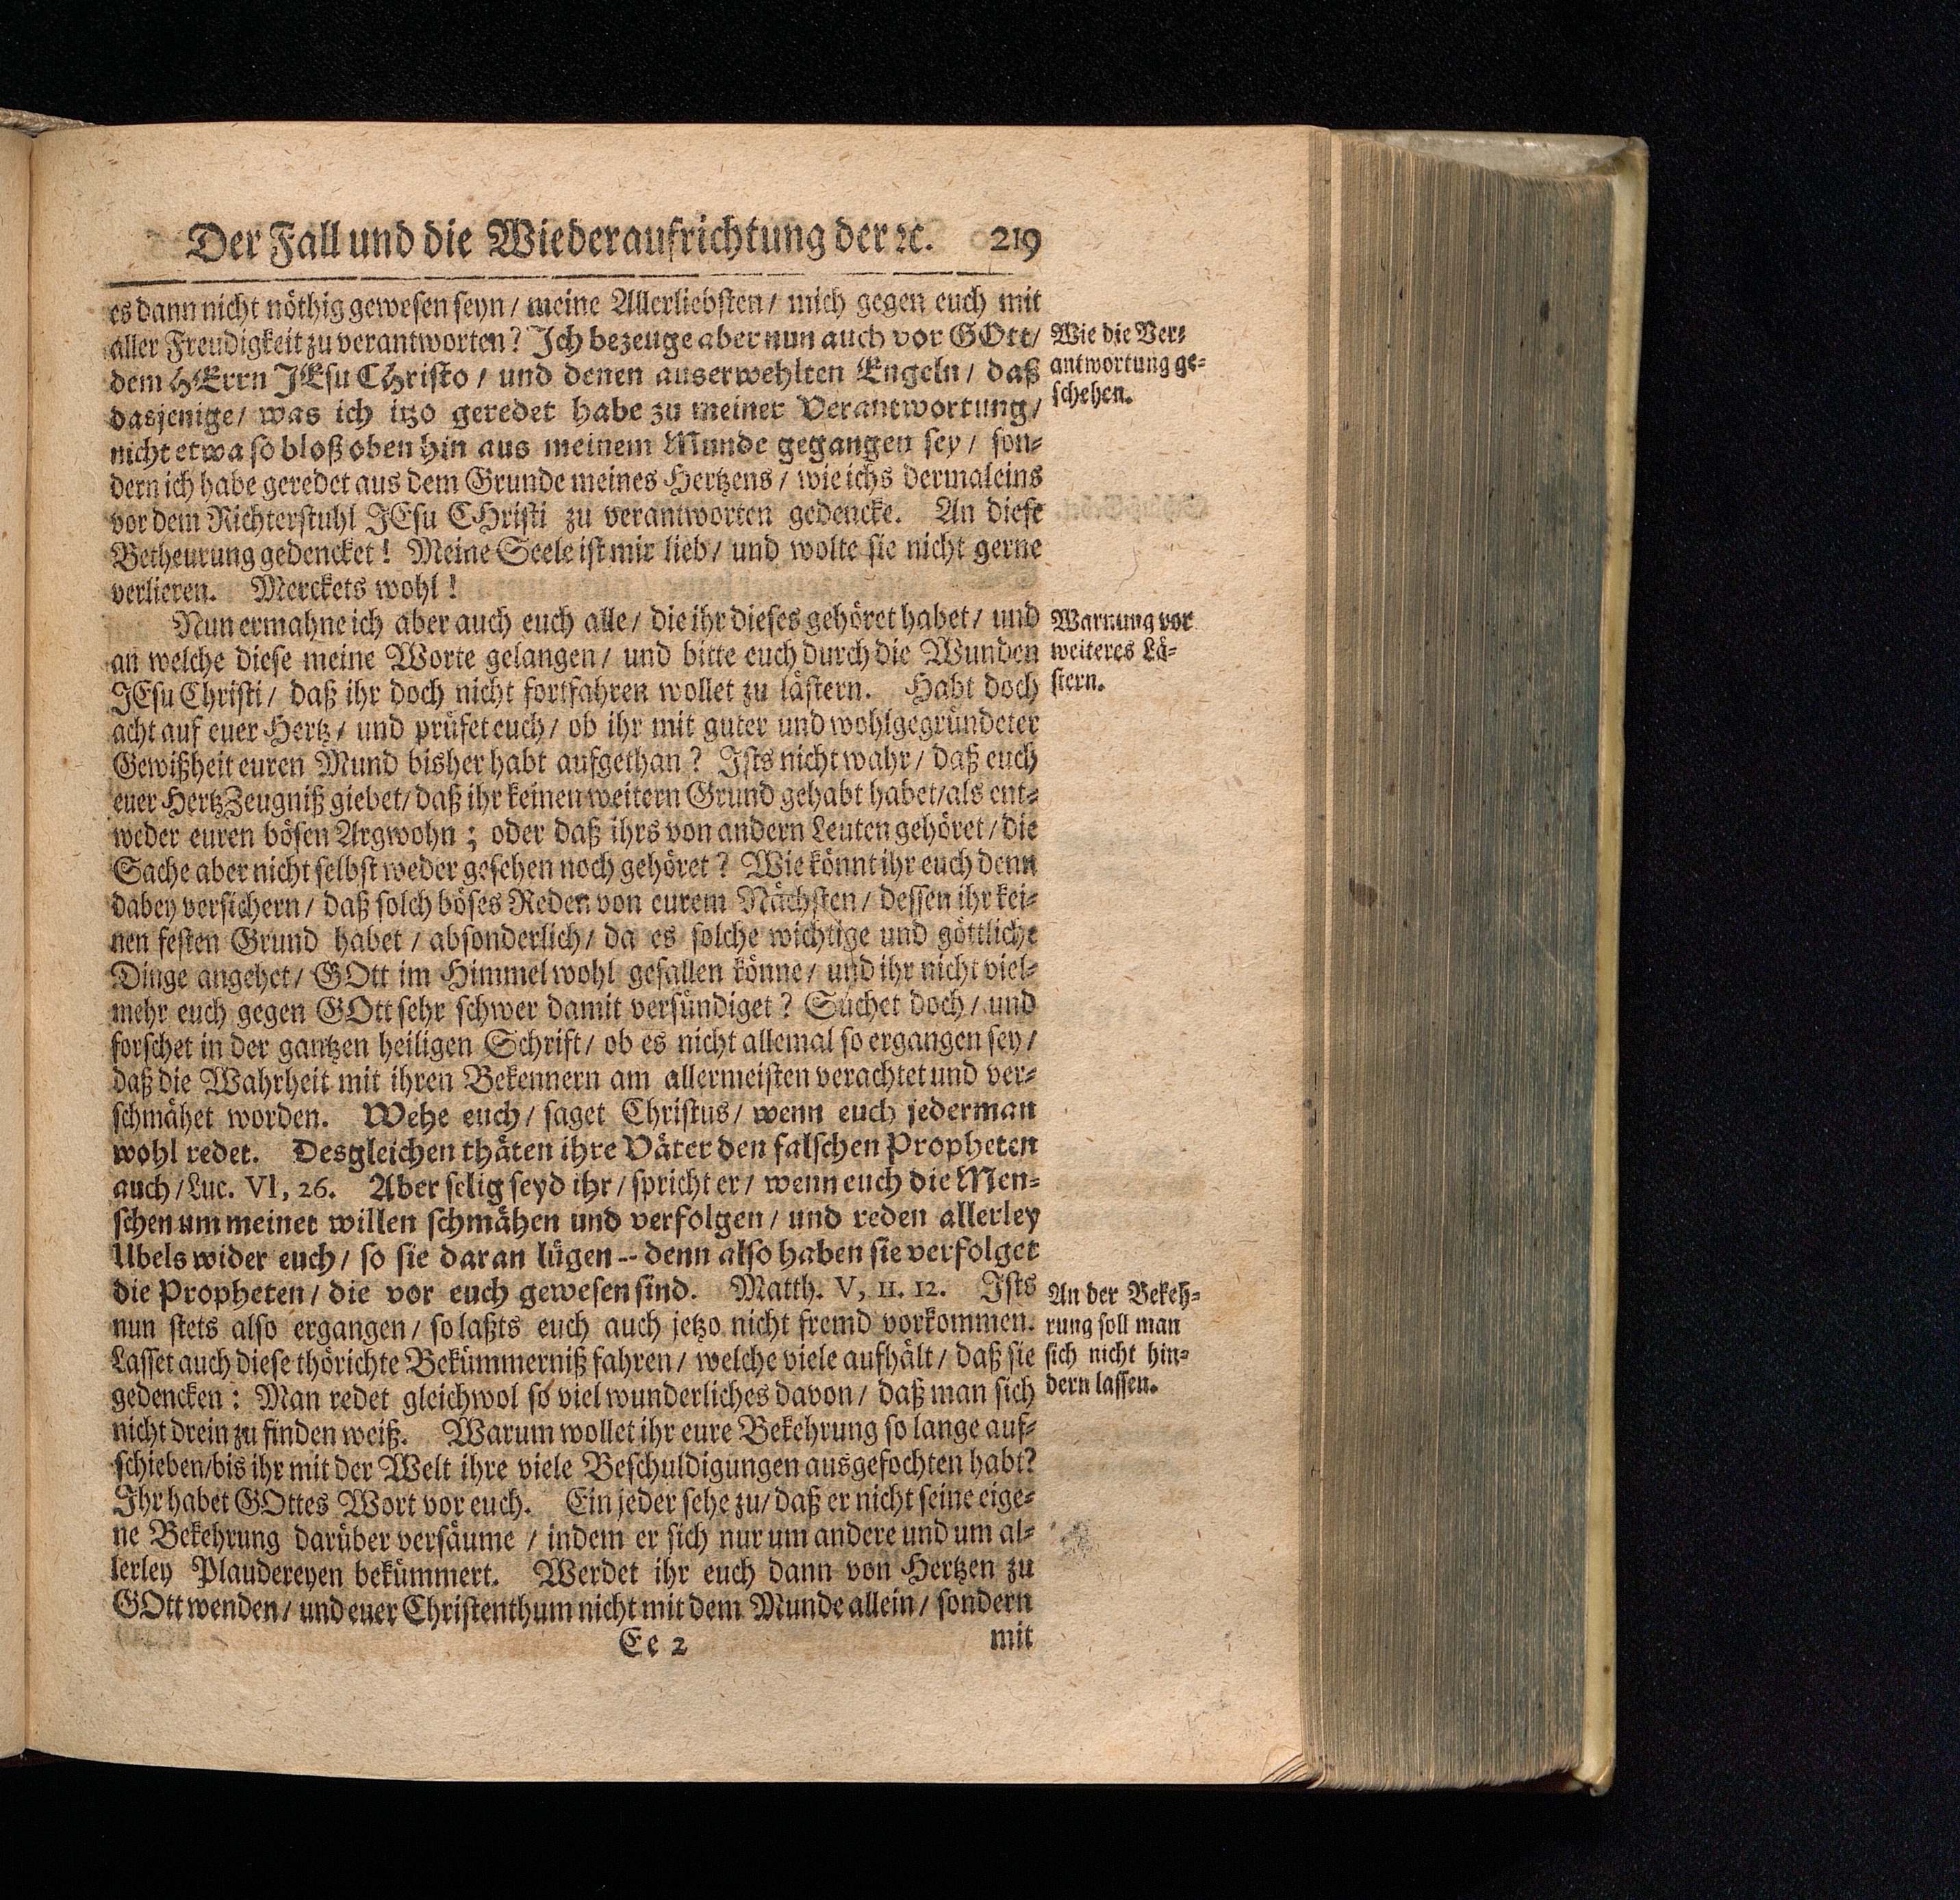 Der Fall und die Wiederaufrichtung der ꝛc. 219
es dann nicht nöthig gewesen seyn / meine Allerliebsten / mich gegen euch mit
aller Freudigkeit zu verantworten? Ich bezeuge aber nun auch vor GOtt /
dem HErrn JEsu CHristo / und denen auserwehlten Engeln / daß
dasjenige / was ich itzo geredet habe zu meiner Verantwortung /
nicht etwa so bloß oben hin aus meinem Munde gegangen sey / son-
dern ich habe geredet aus dem Grunde meines Hertzens / wie ichs dermaleins
vor dem Richterstuhl JEsu CHristi zu verantworten gedencke. An diese
Betheurung gedencket! Meine Seele ist mir lieb / und wolte sie nicht gerne
verlieren. Merckets wohl!
Wie die Ver-
antwortung ge-
schehen.
Nun ermahne ich aber auch euch alle / die ihr dieses gehöret habet / und
an welche diese meine Worte gelangen / und bitte euch durch die Wunden
JEsu Christi / daß ihr doch nicht fortfahren wollet zu lästern. Habt doch
acht auf euer Hertz / und prüfet euch / ob ihr mit guter und wohlgegründeter
Gewißheit euren Mund bisher habt aufgethan? Ists nicht wahr / daß euch
euer Hertz Zeugniß giebet / daß ihr keinen weitern Grund gehabt habet / als ent-
weder euren bösen Argwohn; oder daß ihrs von andern Leuten gehöret / die
Sache aber nicht selbst weder gesehen noch gehöret? Wie könnt ihr euch denn
dabey versichern / daß solch böses Reden von eurem Nächsten / dessen ihr kei-
nen festen Grund habet / absonderlich / da es solche wichtige und göttliche
Dinge angehet / GOtt im Himmel wohl gefallen könne / und ihr nicht viel-
mehr euch gegen GOtt sehr schwer damit versündiget? Suchet doch / und
forschet in der gantzen heiligen Schrift / ob es nicht allemal so ergangen sey /
daß die Wahrheit mit ihren Bekennern am allermeisten verachtet und ver-
schmähet worden. Wehe euch / saget Christus / wenn euch jederman
wohl redet. Desgleichen thäten ihre Väter den falschen Propheten
auch / Luc. VI, 26. Aber selig seyd ihr / spricht er / wenn euch die Men-
schen um meinet willen schmähen und verfolgen / und reden allerley
Ubels wider euch / so sie daran lügen -- denn also haben sie verfolget
die Propheten / die vor euch gewesen sind. Matth. V, 11. 12. Ists
nun stets also ergangen / so laßts euch auch jetzo nicht fremd vorkommen.
Lasset auch diese thörichte Bekümmerniß fahren / welche viele aufhält / daß sie
gedencken: Man redet gleichwol so viel wunderliches davon / daß man sich
nicht drein zu finden weiß. Warum wollet ihr eure Bekehrung so lange auf-
schieben / bis ihr mit der Welt ihre viele Beschuldigungen ausgefochten habt?
Ihr habet GOttes Wort vor euch. Ein jeder sehe zu / daß er nicht seine eige-
ne Bekehrung darüber versäume / indem er sich nur um andere und um al-
lerley Plaudereyen bekümmert. Werdet ihr euch dann von Hertzen zu
GOtt wenden / und euer Christenthum nicht mit dem Munde allein / sondern
Warnung vor
weiteres Lä-
stern.
An der Bekeh-
rung soll man
sich nicht hin-
dern lassen.
Ee 2 mit